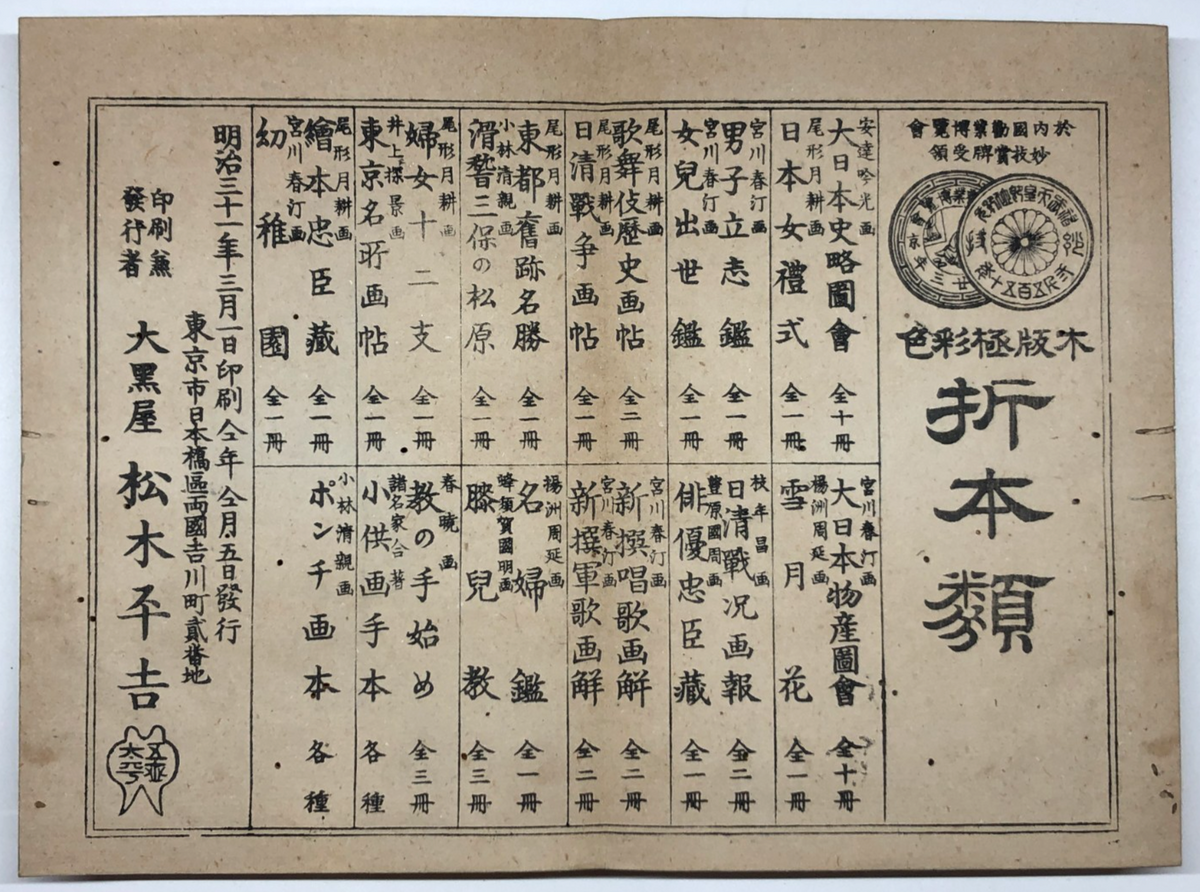 於内國勸業博覽會
妙技賞牌受領
木版極彩色
折本類
安達吟光画
大日本史略圖會 全十冊
尾形月耕画
日本女禮式 全一冊
宮川春汀画
男子立志鑑 全一冊
宮川春汀画
女兒出世鑑 全一冊
尾形月耕画
歌舞伎歴史画帖 全二冊
尾形月耕画
日清戰争画帖 全一冊
尾形月耕画
東都舊跡名勝 全一冊
小林清親画
滑稽三保の松原 全一冊
尾形月耕画
婦女十二支 全一冊
井上探景画
東京名所画帖 全一冊
尾形月耕画
繪本忠臣藏 全一冊
宮川春汀画
幼稚園 全一冊
宮川春汀画
大日本物産圖會 全十冊
楊洲周延画
雪月花 全一冊
枝年昌画
日清戰况画報 全二冊
豊原國周画
俳優忠臣藏 全一冊
宮川春汀画
新撰唱歌画解 全二冊
宮川春汀画
新撰軍歌画解 全二冊
楊洲周延画
名婦鑑 全一冊
蜂須賀國明画
膝兒教 全三冊
春暁画
教の手始め 全三冊
諸名家合著
小供画手本 各種
小林清親画
ポンチ画本 各種
明治三十一年三月一日印刷仝年仝月五日發行
東京市日本橋區両國吉川町貳番地
印刷兼
發行者 大黑屋 松木平吉